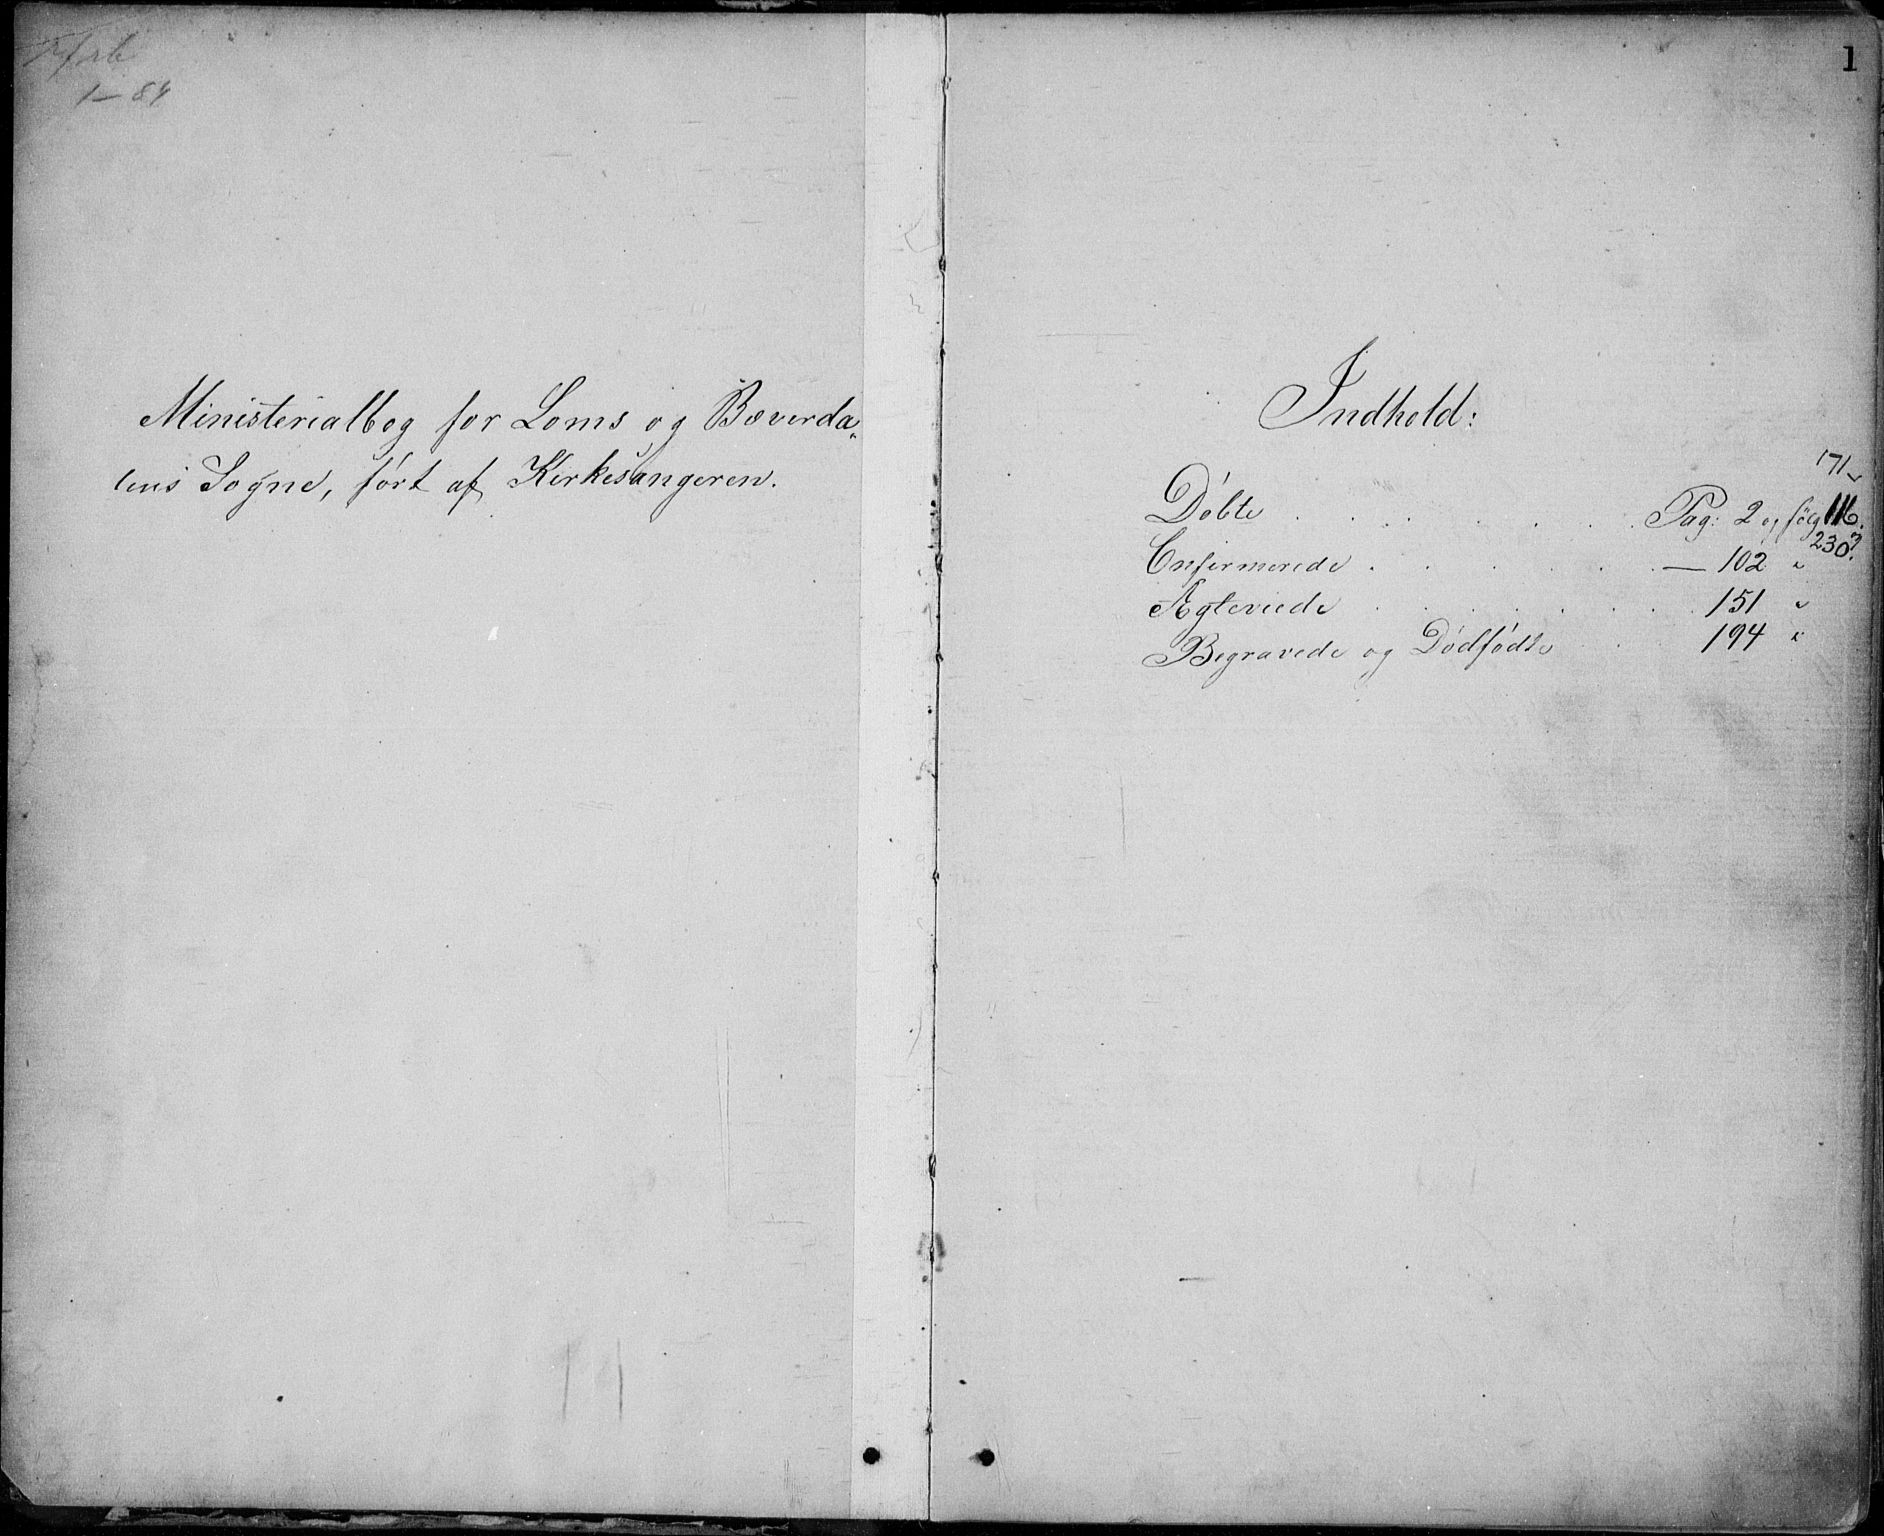 1–84
Ministerialbog for Loms og Bæverda„
lens Sogne, ført af Kirkesangeren.
1
Indhold:
171
Døbte . . . . . . . Pag: 2 og følg 116.
230?
Confirmerede . . . . . . — 102 "
Ægteviede . . . . . . . 151 "
Begravede og Dødfødte . . 194 "